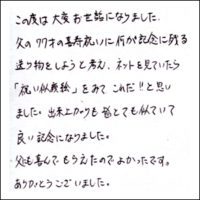 この度は大変お世話になりました。
父の77才の喜寿祝いに何か記念に残る
送り物をしようと考え、ネットを見ていたら
「祝い似顔絵」をみてこれだ!!と思い
ました。出来上がりも皆とても似ていて
良い記念になりました。
父も喜んでもらえたのでよかったです。
ありがとうございました。